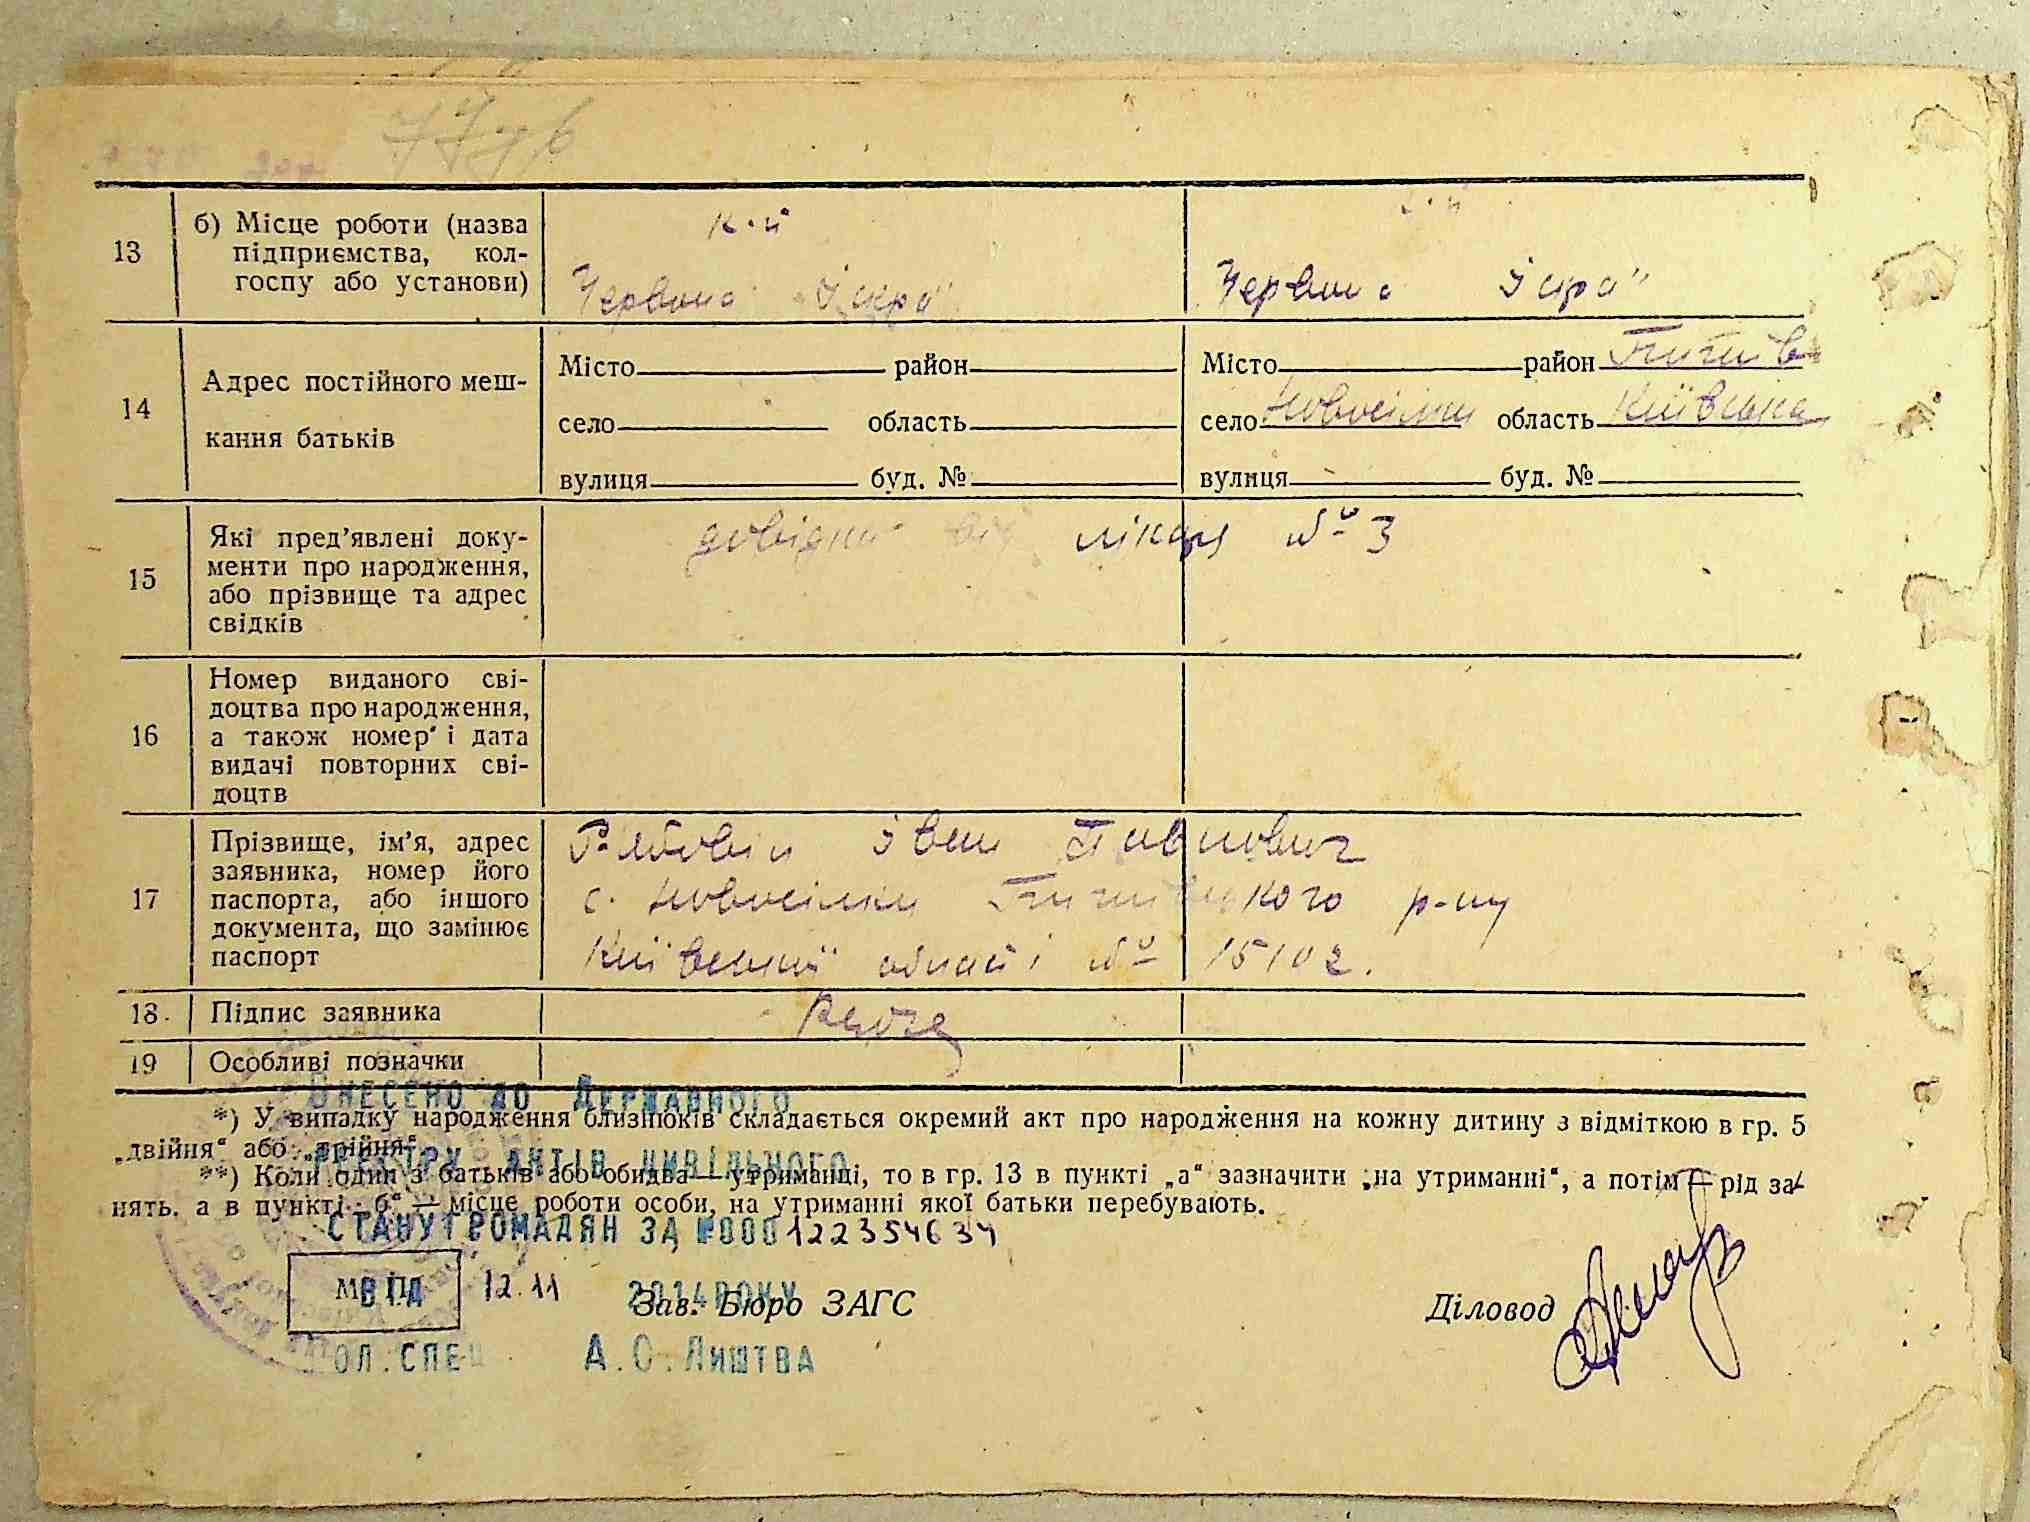 13
б) Місце роботи (назва
підприємства, кол-
госпу або установи)
к-п
Червона „Іскра"
Червона Іскра"
14
Адрес постійного меш-
кання батьків
Місто район
село область
вулиця буд. №
Місто район
село Новосілки область Київська
вулиця буд. №
15
Які пред'явлені доку-
менти про народження,
або прізвище та адрес
свідків
довідка від лікаря № 3
16
Номер виданого сві-
доцтва про народження,
а також номер і дата
видачі повторних сві-
доцтв
17
Прізвище, ім'я, адрес
заявника, номер його
паспорта, або іншого
документа, що замінює
паспорт
Іван Павлович
с. Новосілки р-ну
Київської області № 15102.
18
Підпис заявника
19
Особливі позначки
Внесено до Державного
*) У випадку народження близнюків складається окремий акт про народження на кожну дитину з відміткою в гр. 5
„двійня“ або „трійня“.
реєстру актів цивільного
**) Коли один з батьків або обидва — утриманці, то в гр. 13 в пункті „а“ зазначити „на утриманні“, а потім — рід за-
нять, а в пункті „б“ — місце роботи особи, на утриманні якої батьки перебувають.
стану громадян за №000122354634
М. П.
ВПД
12.11 2014 року
Зав. Бюро ЗАГС
Діловод
ол. спец А.О. Лиштва